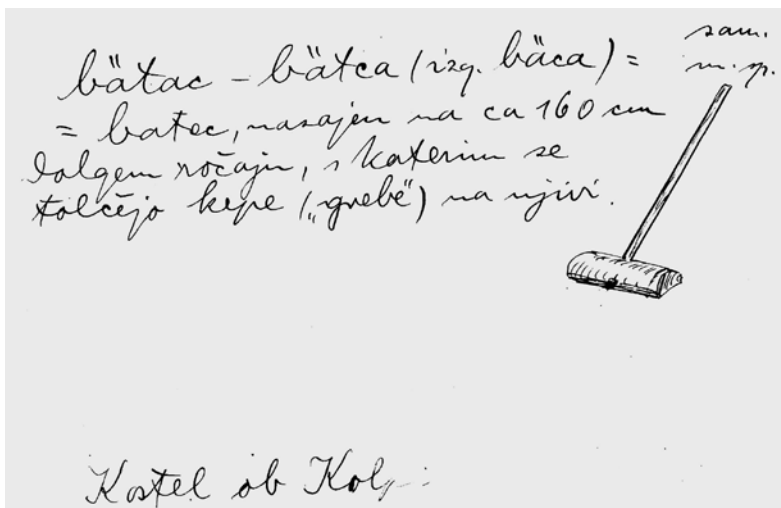 bätac - bätca (izg. bäca) = sam. m. sp.
= batec, nasajen na ca 160 cm
dolgem ročaju, s katerim se
tolčejo kepe („grebë“) na njivi.
Kostel ob